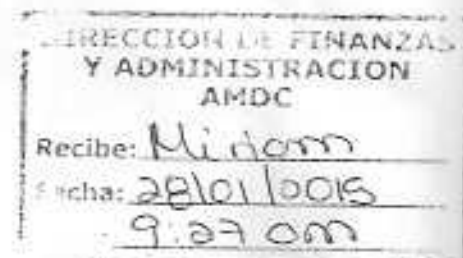 DIRECCION DE FINANZAS
Y ADMINISTRACION
AMDC
Recibe: Miriam
Fecha: 28/01/2015
9:27 am